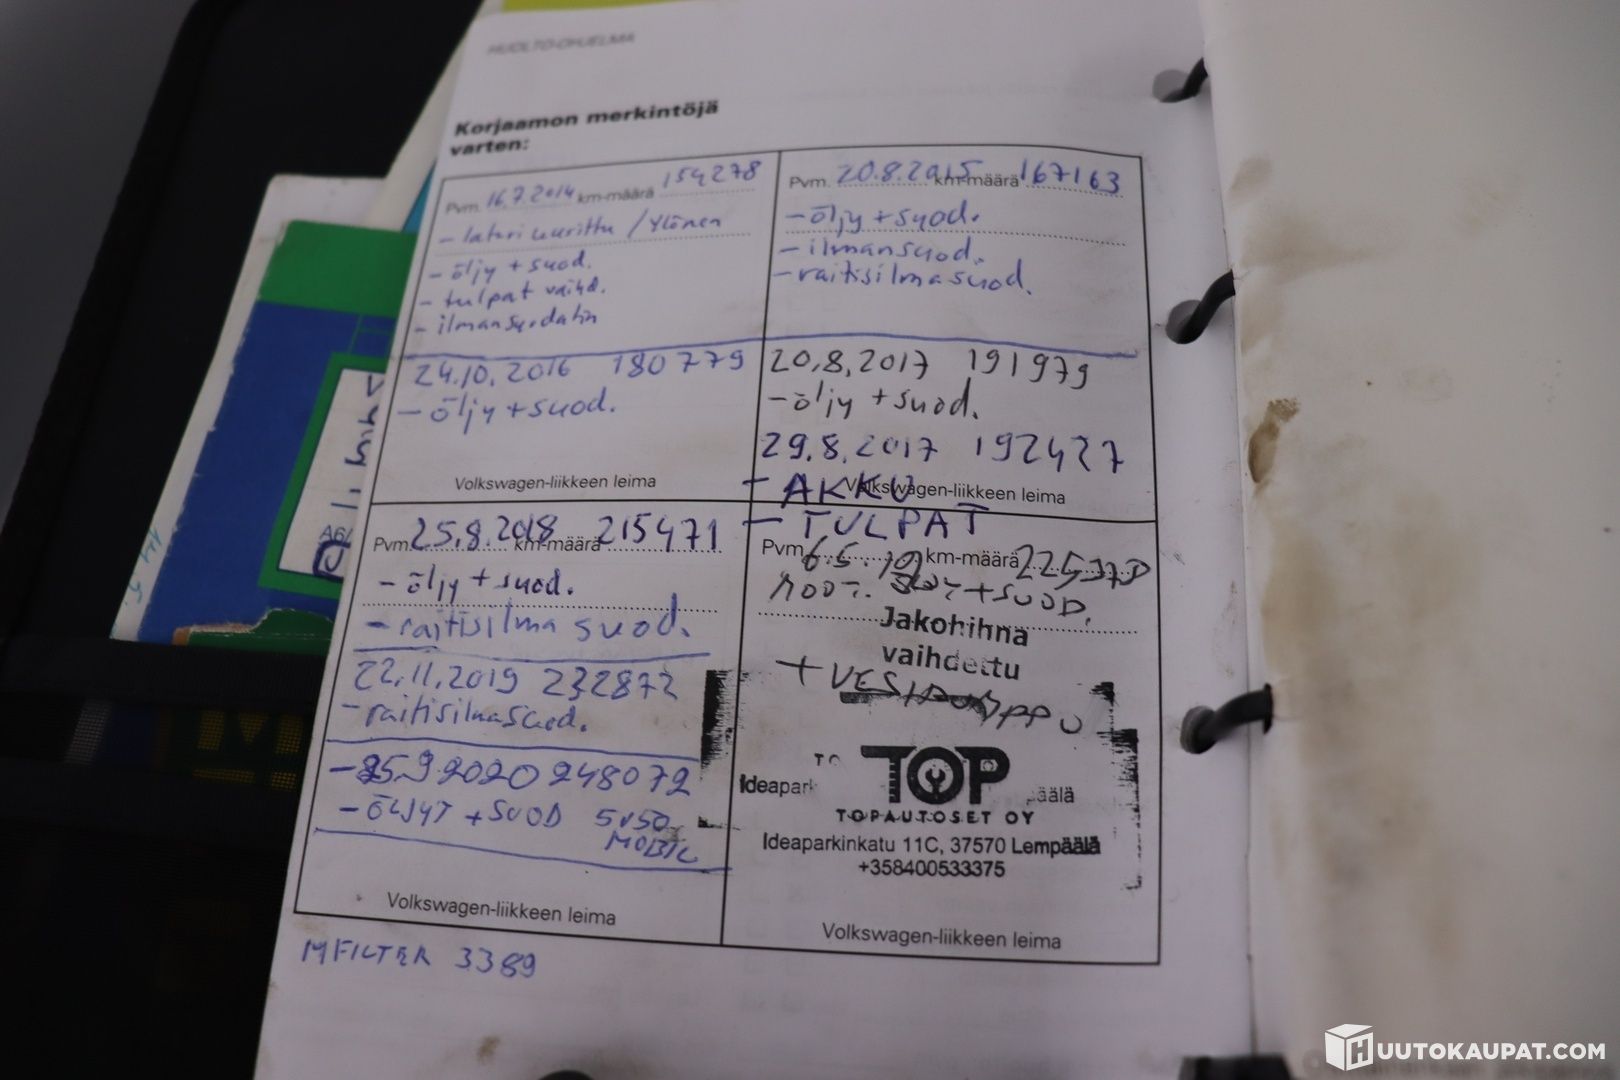 HUOLTO-OHJELMA
Korjaamon merkintöjä
varten:
Pvm. 16.7.2014 km-määrä 154278
- laturi uusittu / Ylönen
- öljy + suod.
- tulpat vaihd.
- ilmansuodatin
24.10.2016 180779
- öljy + suod.
Volkswagen-liikkeen leima
Pvm. 20.8.2015 km-määrä 167163
- öljy + suod.
- ilmansuod.
- raitisilmasuod.
20.8.2017 191979
- öljy + suod.
29.8.2017 192427
- AKKU
Volkswagen-liikkeen leima
- TULPAT
Pvm. 25.8.2018 km-määrä 215471
- öljy + suod.
- raitisilma suod.
22.11.2019 232872
- raitisilmasuod.
-25.9.2020 248072
- ÖLJYT + SUOD 5W50
MOBIL
Volkswagen-liikkeen leima
Pvm. 6.5.19 km-määrä
+SUOD.
Jakohihna
vaihdettu
+ VESIPUMPPU
TOP
Ideapark
TOPAUTOSET OY
Ideaparkinkatu 11C, 37570 Lempäälä
+358400533375
Volkswagen-liikkeen leima
MFILTER 3389
A6/
HUUTOKAUPAT.COM